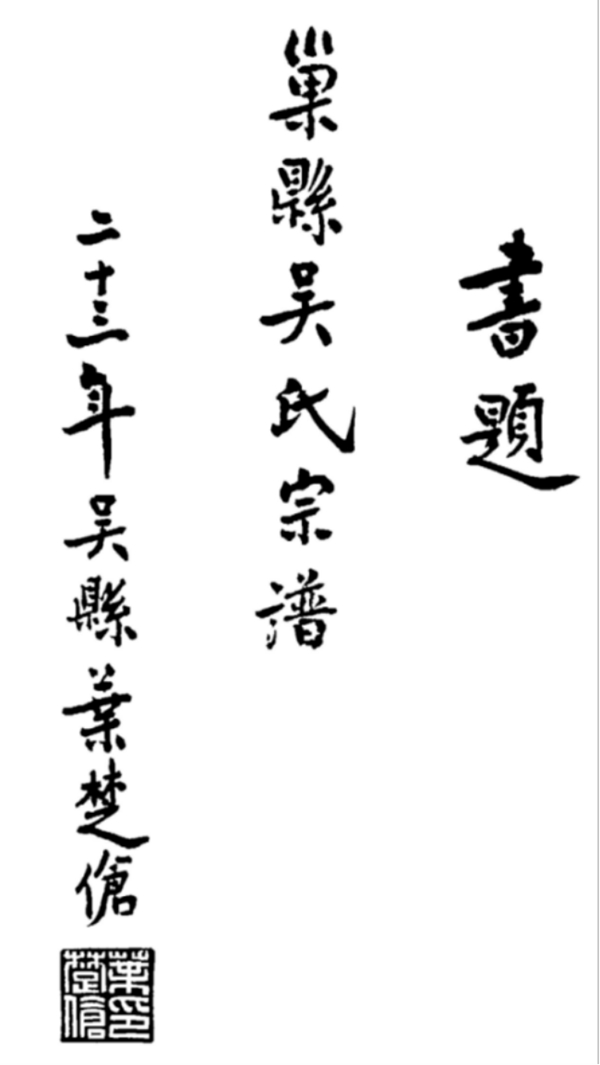 書題
巢縣吴氏宗譜
二十三年吴縣葉楚傖
葉印
楚傖